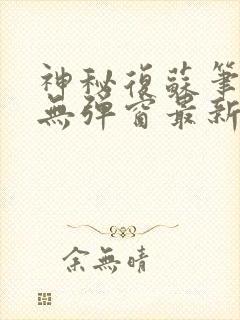 神秘復蘇筆
無彈窗最新
余無晴